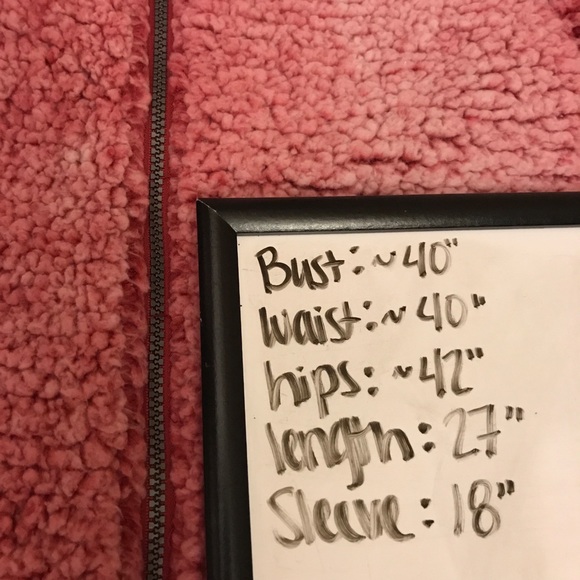 Bust: ~40"
waist: ~40"
hips: ~42"
length: 27"
Sleeve: 18"